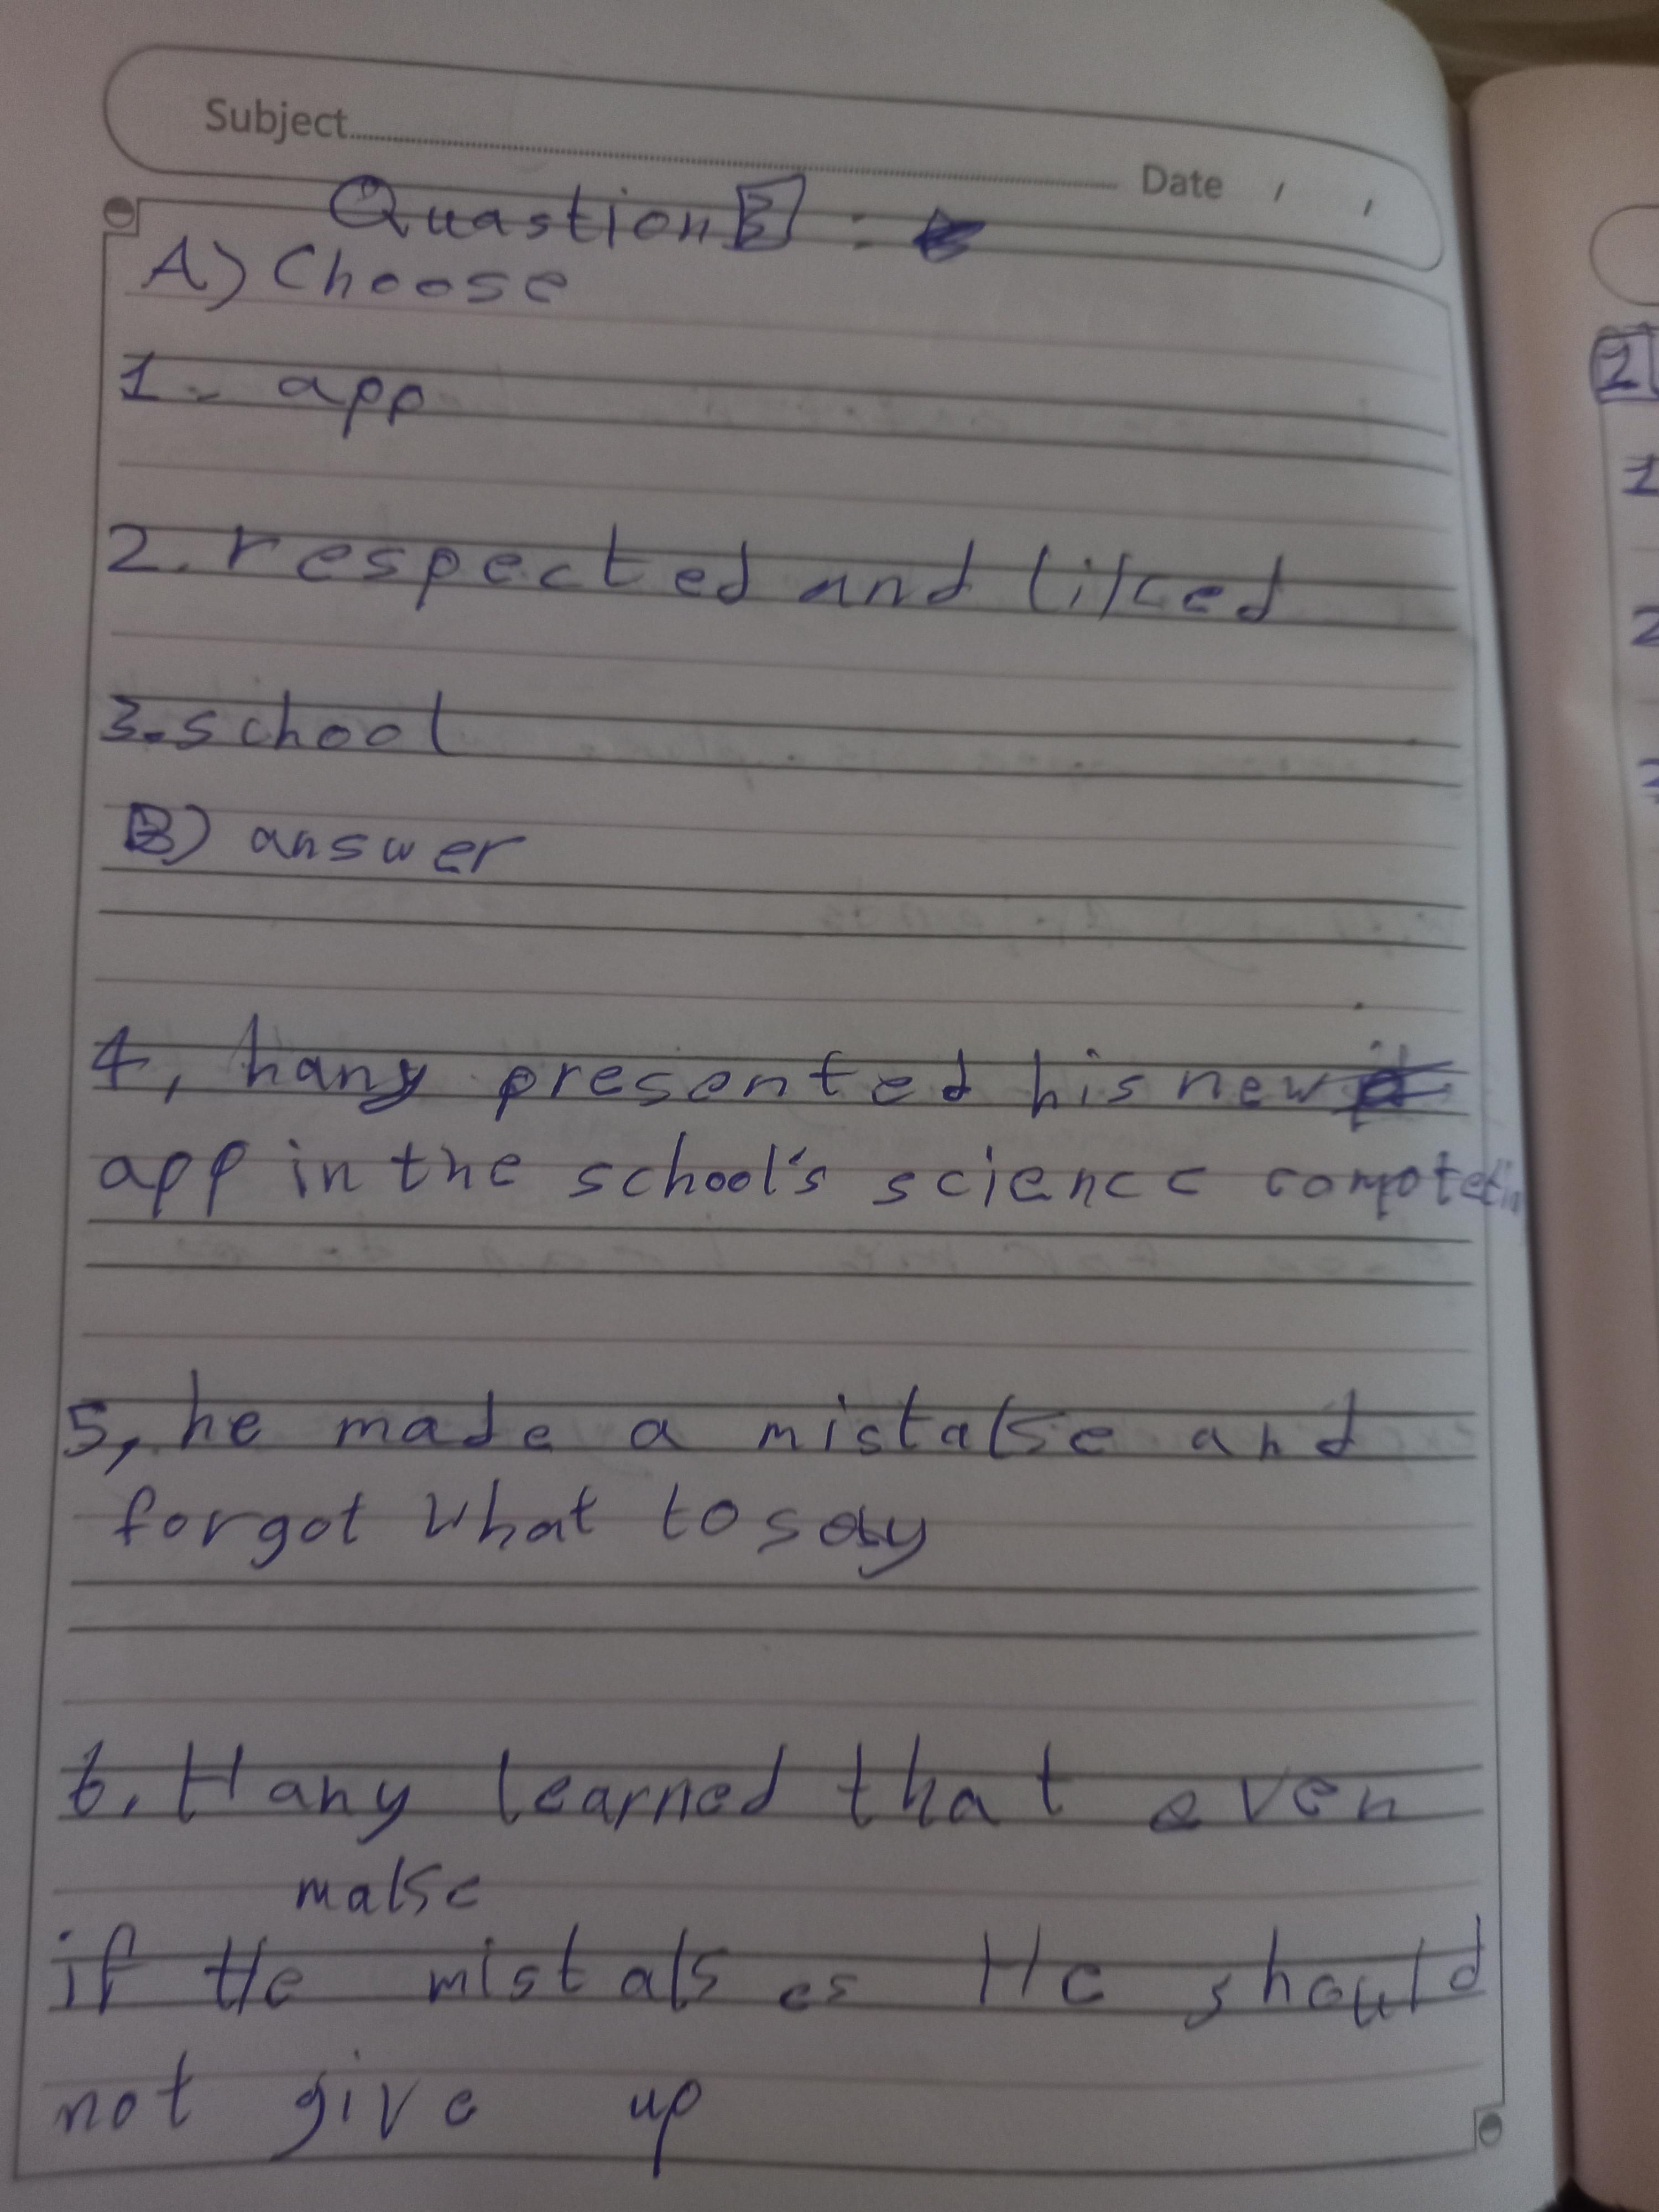 Subject
Date / /
Quastion 3 :
A) Choose
1- app
2. respected and liked
3. school
B) answer
4, hany presented his new
app in the school's science
5, he made a mistake and
forgot what to say
6. Hany learned that even
make
if He mistakes He should
not give up
2
1
2
3